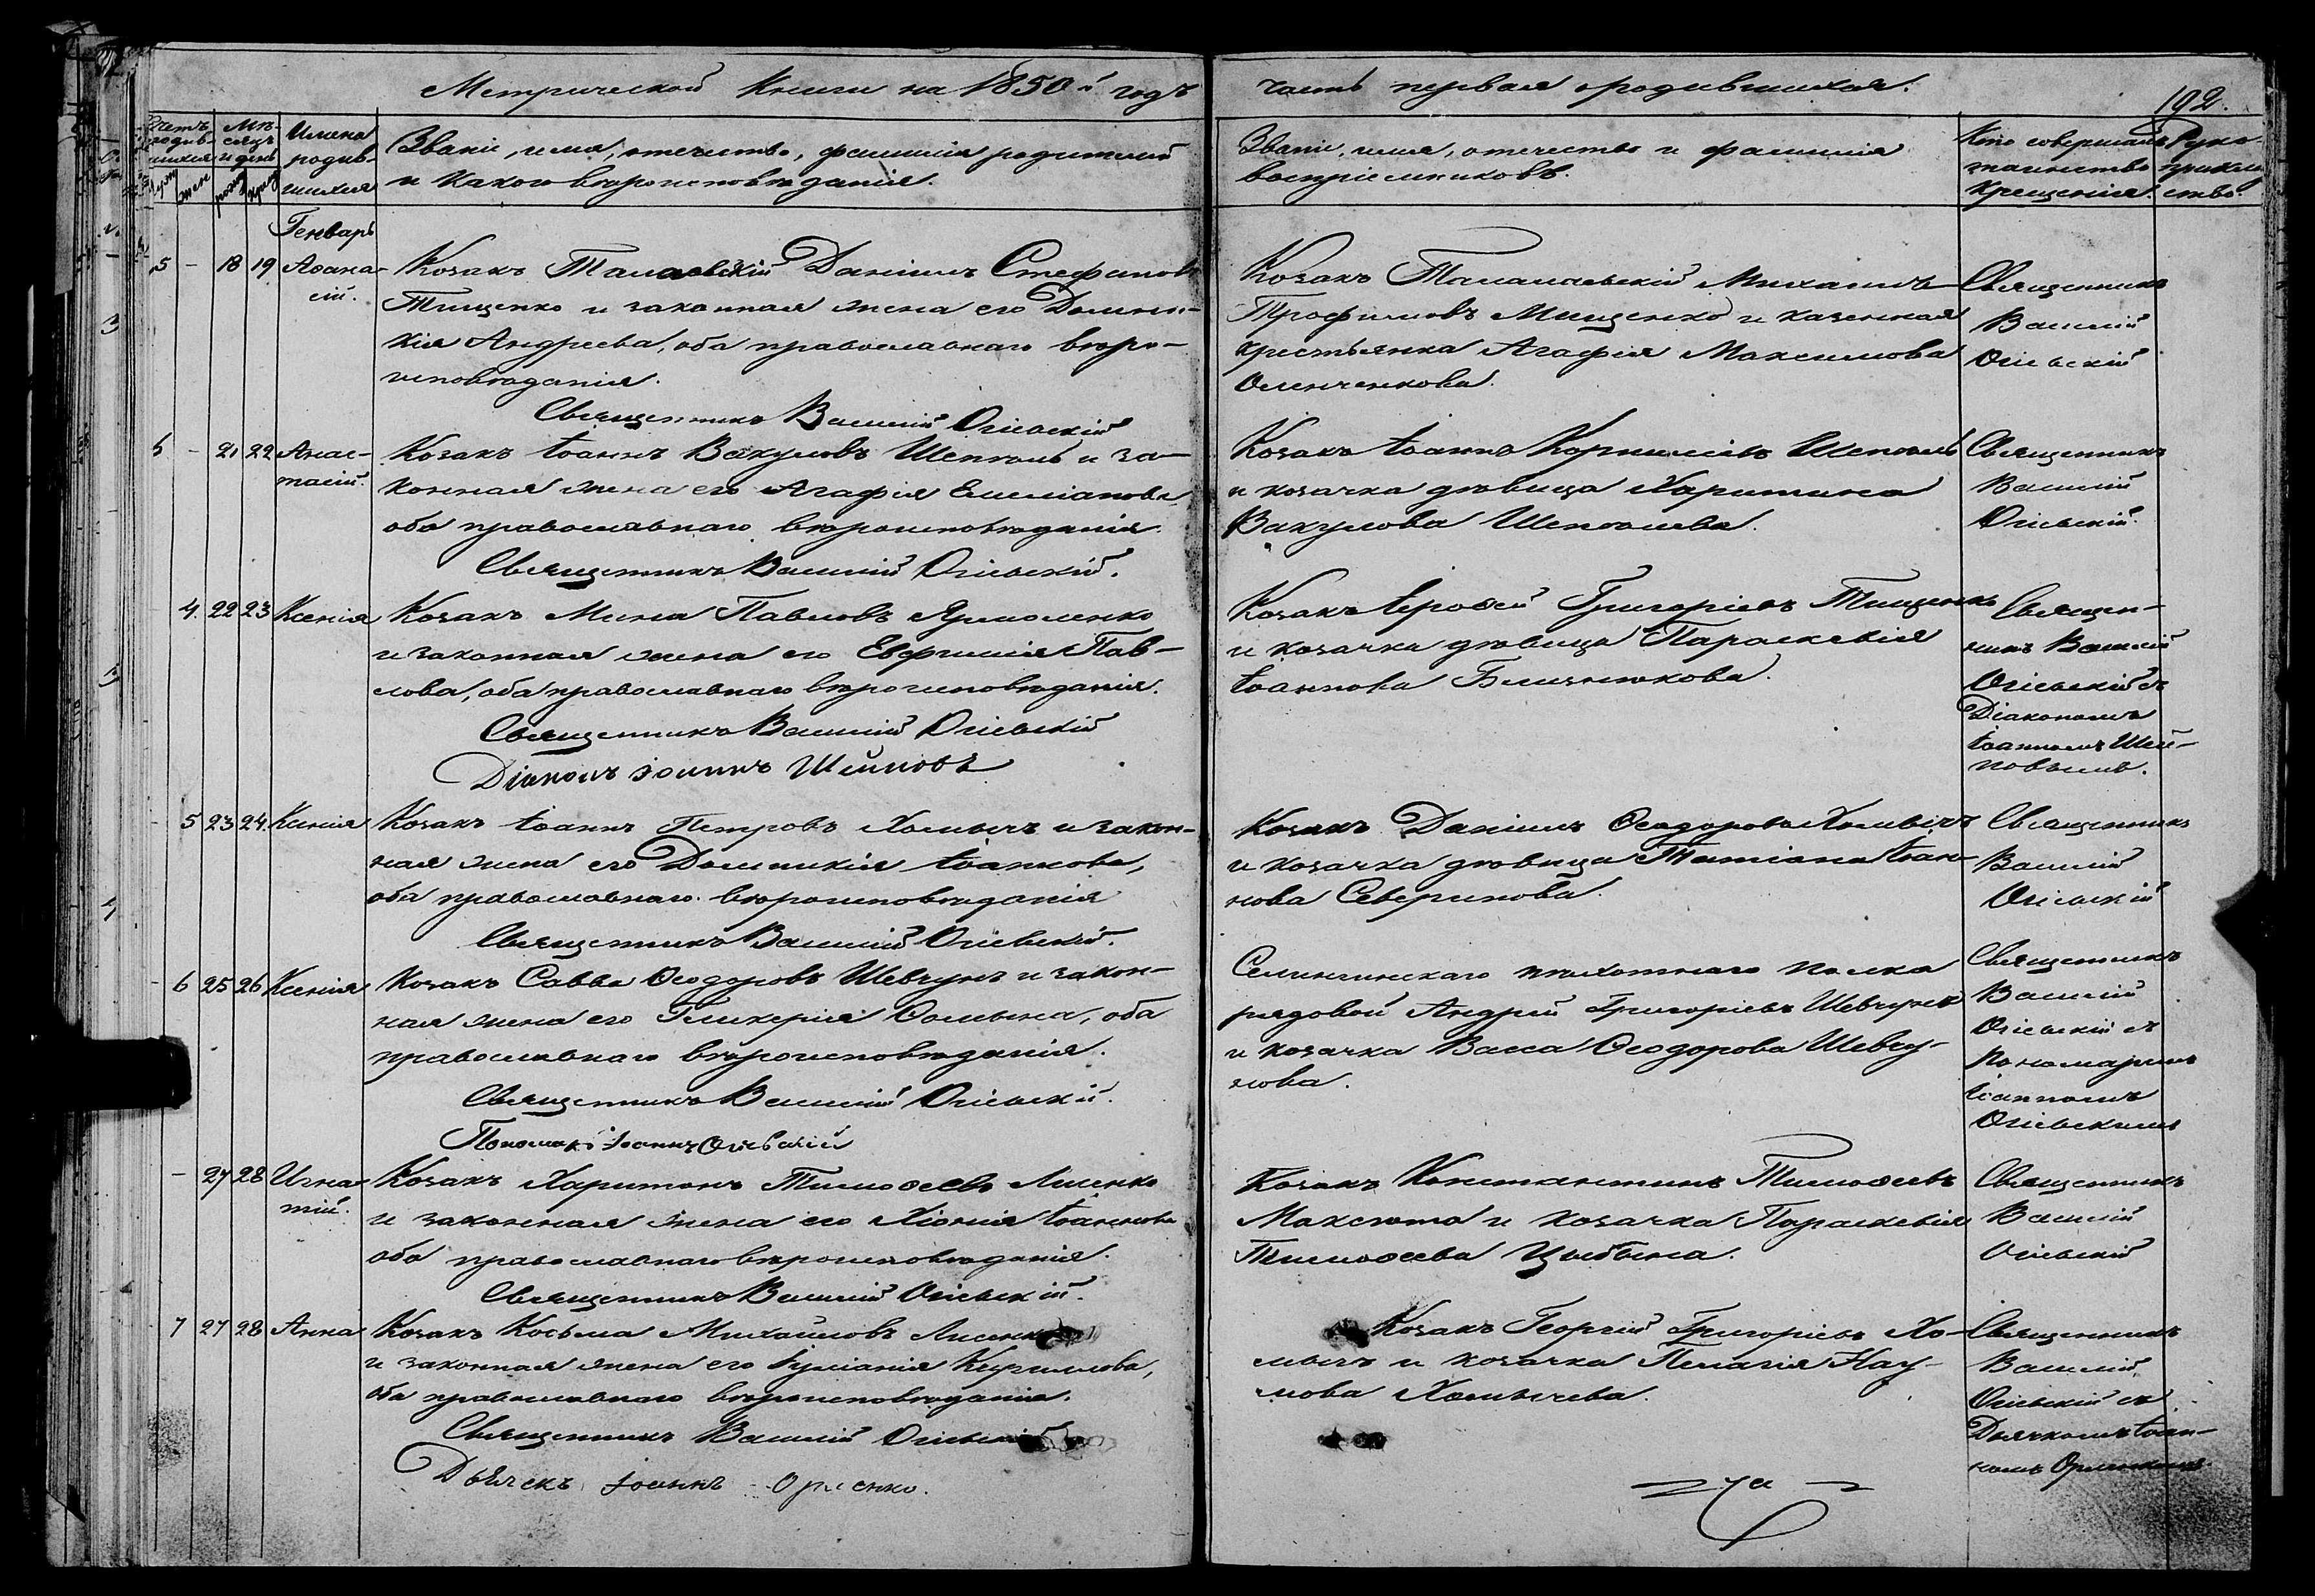 Метрической Книги на 1850й годъ часть первая о родившихся.
192.
Счетъ родив-шихся
муж. жен.
Мѣ-сяцъ и день
рожд. крещ.
Имена родив-шихся
Званіе, имя, отечество, фамилія родителей
и какого вѣроисповѣданія.
Званіе, имя, отечество и фамилія
воспріемниковъ.
Кто совершалъ
таинство
крещенія.
Руко-
прикла-
ство.
Генварь
5 - 18 19 Аѳана-
сій.
Козакъ Даніилъ Стефановъ
Тищенко и законная жена его Домни-
кія Андреева, оба православнаго вѣро-
исповѣданія.
Священникъ Василій Огіевскій
Козакъ Талалаевскій Михаилъ
Трофимовъ Мищенко и казенная
крестьянка Агафія Максимова
Оленченкова.
Священникъ
Василій
Огіевскій
6 - 21 22 Анас-
тасій.
Козакъ Іоаннъ Вакуловъ Шеполь и за-
конная жена его Агафія Емиліанова
оба православнаго вѣроисповѣданія.
Священникъ Василій Огіевскій.
Козакъ Іоаннъ Корниліевъ Шеполь
и козачка дѣвица Харитина
Вакулова Шеполева.
Священникъ
Василій
Огіевскій.
4. 22 23 Ксенія
Козакъ Мина Павловъ Ярмоленко
и законная жена его Евфимія Пав-
лова, оба православнаго вѣроисповѣданія.
Священникъ Василій Огіевскій
Діаконъ Іоаннъ Шейповъ
Козакъ Іерофей Григоріевъ Тищенко
и козачка дѣвица Параскевія
Іоаннова Близнюкова.
Священ-
никъ Василій
Огіевскій съ
Діакономъ
Іоанномъ Шей-
повымъ.
- 5 23 24. Ксенія
Козакъ Іоаннъ Петровъ Хомычъ и закон-
ная жена его Домникія Іоаннова,
оба православнаго вѣроисповѣданія
Священникъ Василій Огіевскій.
Козакъ Даніилъ Ѳеодоровъ Хомычъ
и козачка дѣвица Татіана Іоан-
нова Северинова.
Священникъ
Василій
Огіевскій
- 6 25 26 Ксенія
Козакъ Савва Ѳеодоровъ Шевчунъ и закон-
ная жена его Гликерія Ѳомина, оба
православнаго вѣроисповѣданія.
Священникъ Василій Огіевскій.
Пономарь Іоаннъ Огіевскій
Селингинскаго пѣхотнаго полка
рядовой Андрей Григоріевъ Шевчунъ
и козачка Васса Ѳеодорова Шевчу-
нова.
Священникъ
Василій
Огіевскій съ
Пономаремъ
Іоанномъ
Огіевскимъ
- 27 28 Игна-
тій.
Козакъ Харитонъ Тимоѳеевъ Лисенко
и законная жена его Хіонія Іоаннова
оба православнаго вѣроисповѣданія.
Священникъ Василій Огіевскій.
Козакъ Константинъ Тимоѳеевъ
Максюта и козачка Параскевія
Тимоѳеева Цыбина.
Священникъ
Василій
Огіевскій
7 27 28 Анна
Козакъ Косьма Михайловъ Лисенко
и законная жена его Іуліанія Кирилова,
оба православнаго вѣроисповѣданія.
Священникъ Василій Огіевскій
Дьячекъ Іоаннъ Орленко.
Козакъ Георгій Григоріевъ Хо-
мычъ и козачка Пелагія Нау-
мова Хомычева.
Священникъ
Василій
Огіевскій съ
Дьячкомъ Іоан-
номъ Орленкомъ.